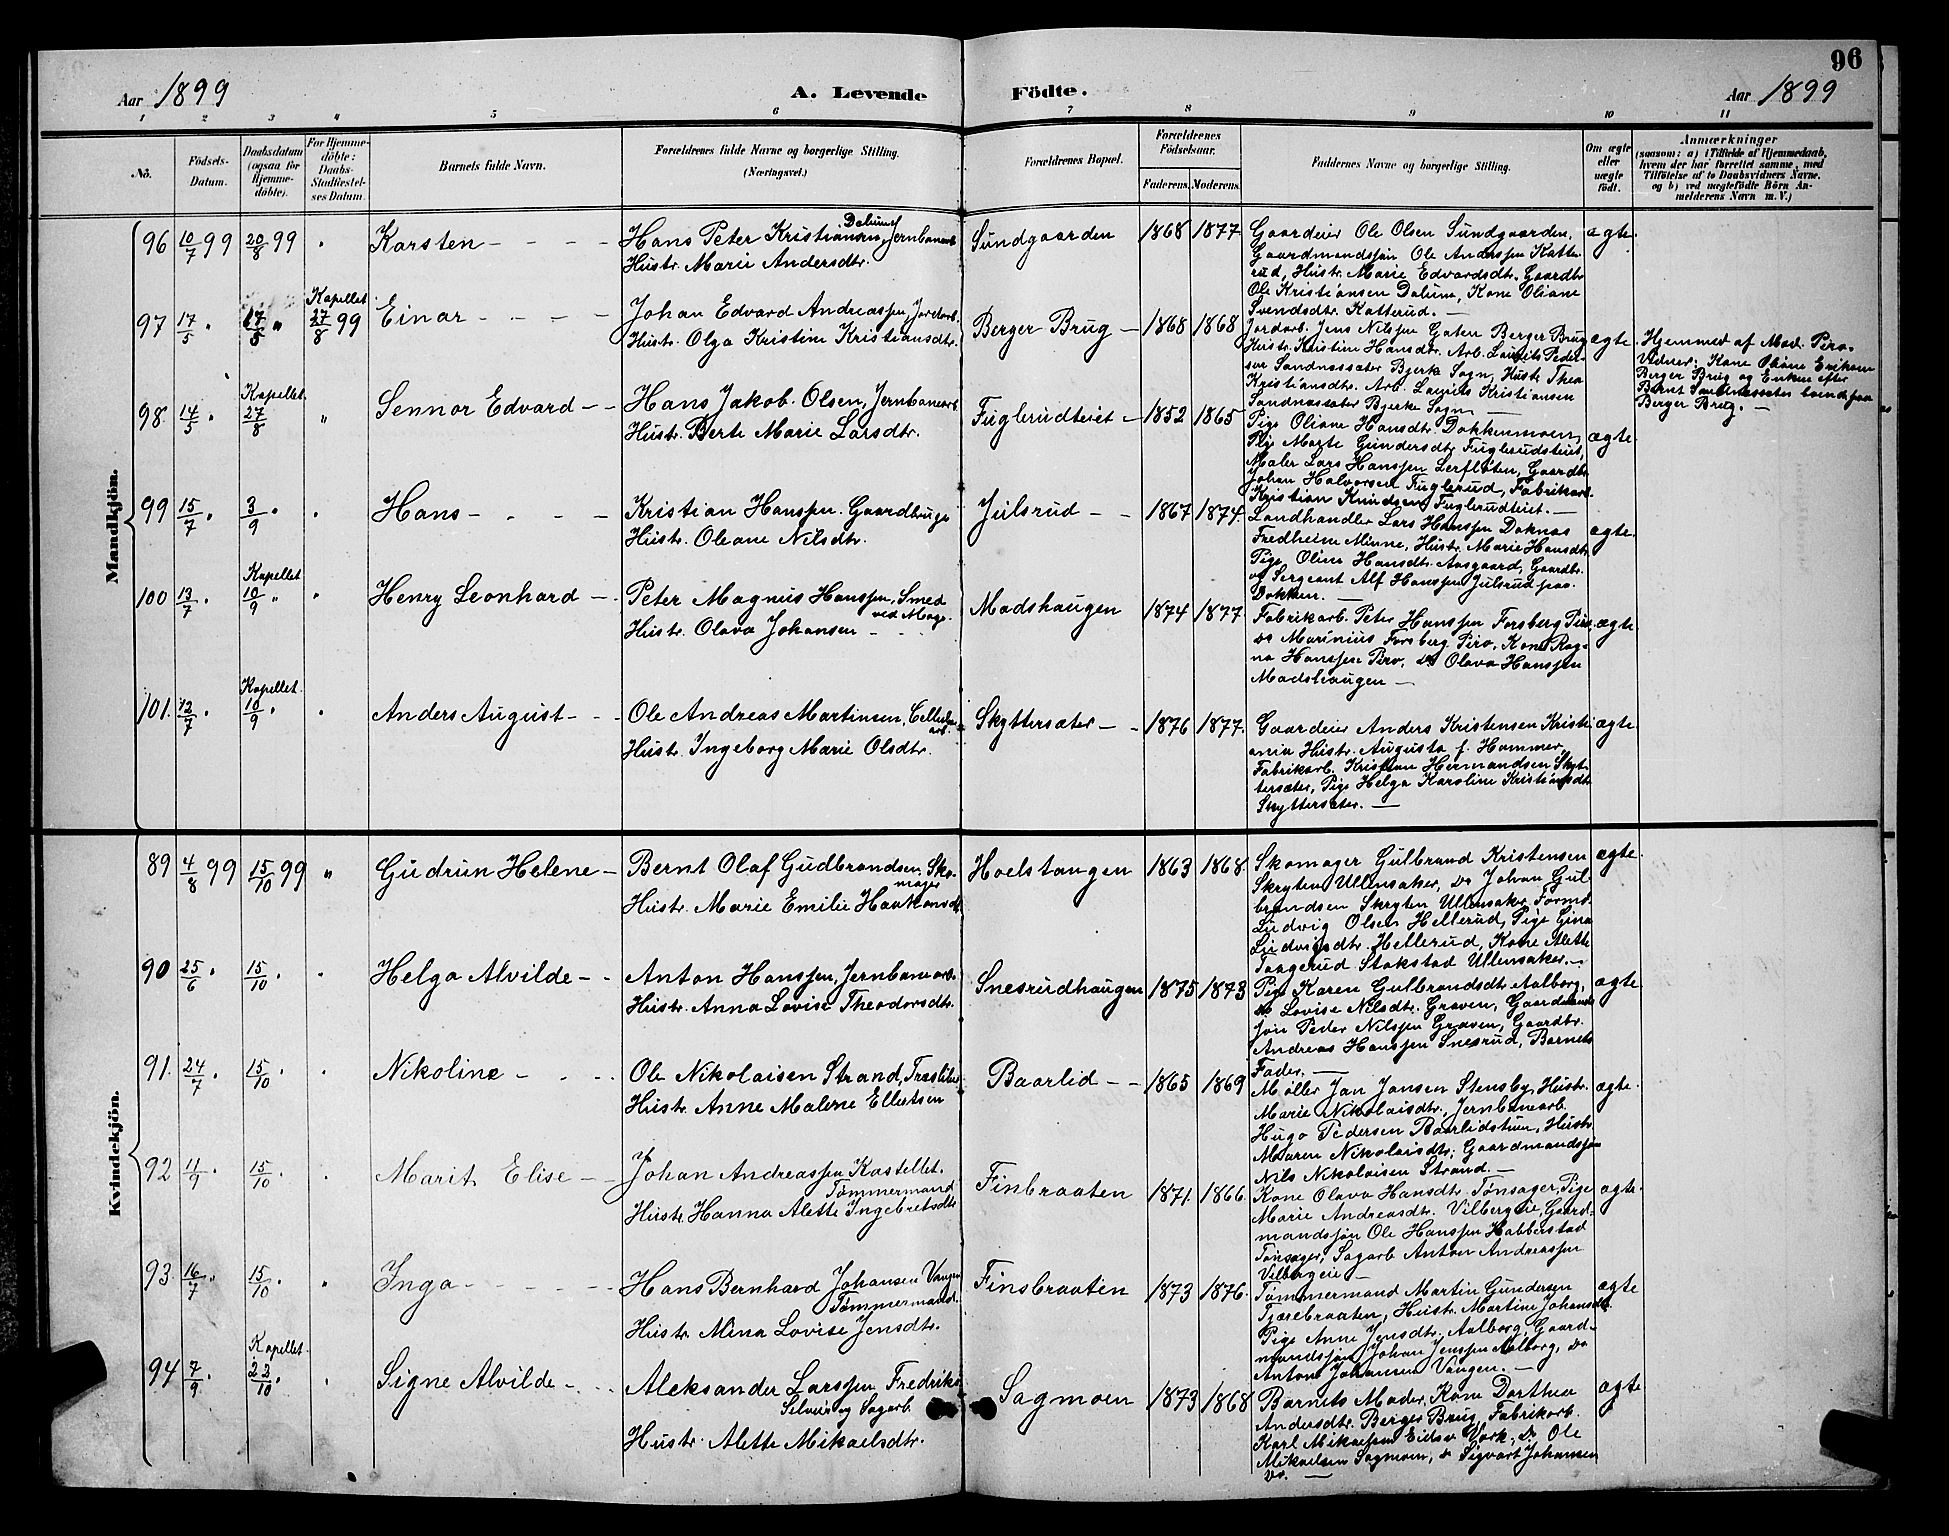 96
Aar 1899 A. Levende Födte. Aar 1899
1 2 3 4 5 6 7 8 9 10 11
No. Födsels-Datum. Daabsdatum (ogsaa for Hjemme-döbte). For Hjemme-döbte: Daabs-Stadfæstel-ses Datum. Barnets fulde Navn. Forældrenes fulde Navne og borgerlige Stilling. (Næringsvei.) Forældrenes Bopæl. Forældrenes Födselsaar. Faderens. Moderens. Faddernes Navne og borgerlige Stilling. Om ægte eller uægte födt. Anmærkninger (saasom: a) i Tilfælde af Hjemmedaab, hvem der har forrettet samme, med Tilföielse af to Daabsvidners Navne. og b) ved uægtefödte Börn An-melderens Navn m. V.)
Mandkjön.
96 10/7 99 20/8 99 " Karsten
Hans Peter Kristiansen Dalum, Jernbanearb
Hustr. Marie Andersdtr.
Sundgaarden 1868 1877
Gaardeier Ole Olsen Sundgaarden,
Gaardmandsjøn Ole Andersen Katte-
rud, Hustr. Marie Edvardsdtr. Gaardbr
Ole Kristiansen Dalum, Kone Oliane
Svendsdtr. Katterud. —
ægte.
97 17/5 " 17/5 " Kapellet 27/8 99 Einar
Johan Edvard Andreassen, Jordarb.
Hustr. Olga Kristine Kristiansdtr.
Berger Brug — 1868 1868
Jordarb. Jens Nilsen Gaten Berger Brug
Hustr. Kristine Hansdtr. Arb. Laurits Peder-
sen Sandnessæter Bjerke Sogn, Hustr Thea
Kristiansdtr. Arb. Laurits Kristiansen
Sandnessæter Bjerke Sogn —
ægte.
Hjemmed af Mad. Piro.
Vidner: Kone Oliane Eriksen
Berger Brug og Enken efter
Bernt Sandnessæter boende paa
Berger Brug. —
98. 14/5 " Kapellet 27/8 " Sennor Edvard
Hans Jakob Olsen, Jernbanearb
Hustr. Berte Marie Larsdtr.
Fuglerudteiet 1852 1865
Pige Oliane Hansdtr. Dokkenmoen,
Pige Marte Gundersdtr Fuglerudteiet,
Maler Lars Hanssen Lerfløten, Gaardbr
Johan Halvorsen Fuglerud, Fabrikarb.
Kristian Knudsen Fuglerudteiet. —
ægte.
99 15/7 " 3/9 " " Hans
Kristian Hanssen Gaardbruge
Hustr. Oleane Nilsdtr.
Julsrud 1867 1874
Landhandler Lars Hanssen Doknas
Fredheim Minne, Hustr. Marie Hansdtr.
Pige Oline Hansdtr Aasgaard, Gaardbr.
og Sergeant Alf Hanssen Julsrud paa
Dokken. —
ægte.
100 13/7 " Kapellet 10/9 " " Henry Leonhard
Peter Magnus Hanssen, Smed
ved Mago.
Hustr. Olava Johansen
Madshaugen 1874 1877
Fabrikarb. Peter Hanssen Forsberg Piro,
do Marinius Forsberg Piro, Kone Rag-
na Hanssen Piro, do Olava Hanssen
Madshaugen —
ægte.
101. 12/7 " Kapellet. 10/9 " " Anders August
Ole Andreas Martinsen,
arb.
Hustr. Ingeborg Marie Olsdtr.
Skyttersæter 1876 1877.
Gaardeier Anders Kristensen Kristi-
ania Hustr. Augusta f. Hammer,
Fabrikarb. Kristian Hermandsen Skyt-
tersæter, Pige Helga Karoline Kristiansdtr
Skyttersæter. —
ægte.
Kvindekjön.
89 4/8 99 15/10 99 " Gudrun Helene
Bernt Olaf Gudbrandsen Sko-
mager
Hustr. Marie Emilie Haakonsdtr
Hoelstangen 1863 1868.
Skomager Gulbrand Kristensen
Skryten Ullensaker, do Johan Gul-
brandsen Skryten Ullensaker,
Ludvig Olsen Hellerud, Pige Gina
Ludvigsdtr. Hellerud, Kone Alette
Taagerud Stokstad Ullensaker. —
ægte.
90 25/6 " 15/10 " " Helga Alvilde
Anton Hanssen, Jernbanearb.
Hustr. Anna Lovise Theodorsdtr.
Snesrudhaugen 1875 1873
Pige Karen Gulbrandsdtr Aalborg,
do Lovise Nilsdtr. Graven, Gaardmands
søn Peder Nilssen Graven, Gaardbr.
Andreas Hanssen Snesrud, Barnets
Fader. —
ægte.
91. 24/7 " 15/10 " " Nikoline
Ole Nikolaisen Strand,
Hustr. Anne Malene Ellertsen
Baarlid 1865 1869
Møller Jan Jansen Stensby, Hustr.
Marie Nikolaisdtr., Jernbanearb.
Hugo Pedersen Baarlidstuen, Hustr
Maren Nikolaisdtr; Gaardmandsjøn
Nils Nikolaisen Strand. —
ægte.
92 11/9 15/10 " " Marit Elise
Johan Andreassen Kastellet.
Tømmermand
Hustr. Hanna Alette Ingebretsdtr
Finbraaten 1871. 1866.
Kone Olava Hansdtr. Tønsager, Pige
Marie Andreasdtr. Vilbergeie, Gaard-
mandsjøn Ole Hanssen Habberstad
Tønsager, Sagarb Anton Andreassen
Vilbergeie —
ægte.
93. 16/7 " 15/10 " " Inga
Hans Bernhard Johansen Vangen
Tømmermand.
Hustr Mina Lovise Jensdtr.
Finsbraaten 1873 1876.
Tømmermand Martin Gundersen
Tjærebraaten, Hustr. Martine Johansdtr.
Pige Anne Jensdtr. Aalborg, Gaard-
mandsjøn Johan Jenssen Aalborg, do
Anton Johansen Vangen. —
ægte
94 7/9 " Kapellet. 22/10 " " Signe Alvilde
Aleksander Larssen Fredriks
Selveier og Sagarb.
Hustr. Alette Mikaelsdtr.
Sagmoen 1873 1868
Barnets Moder, Kone Dorthea
Andersdtr. Berger Brug, Fabrikarb.
Karl Mikaelsen Eidsv Værk, do Ole
Mikaelsen Sagmoen, do Sigvart Johansen
do. —
ægte